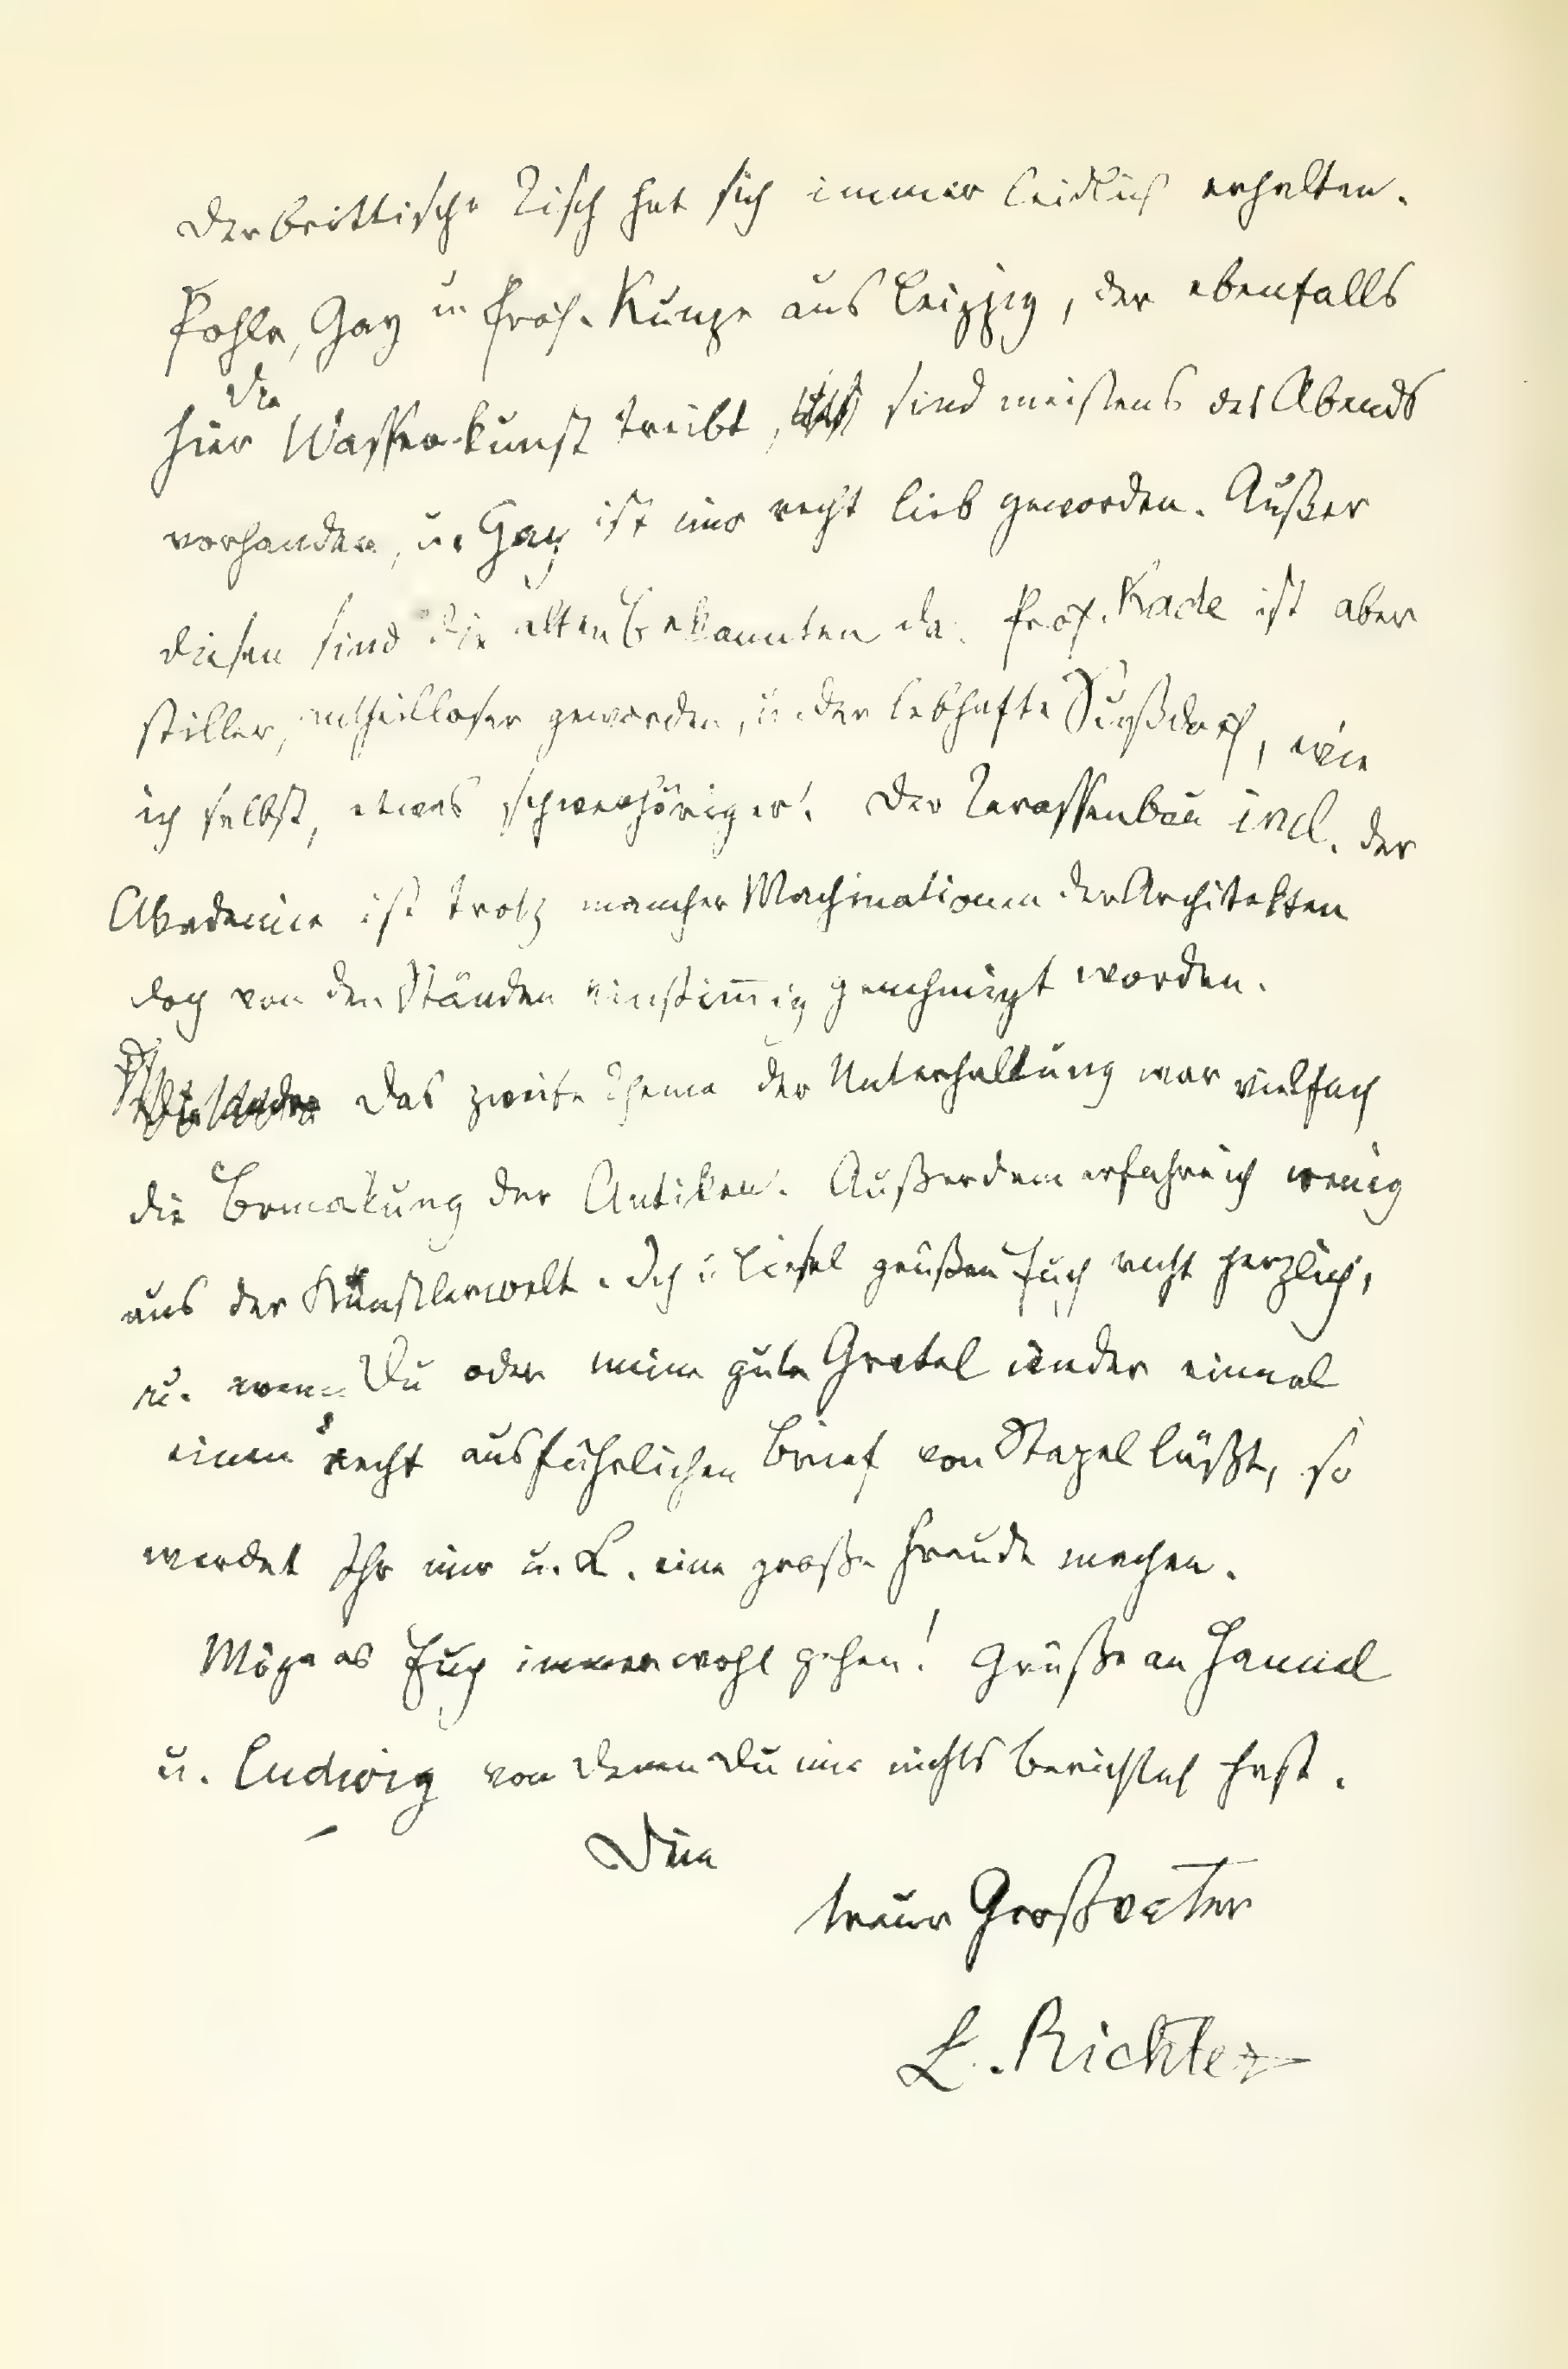 Der brittische Tisch hat sich immer leidlich erhalten.
Pohle, Gey u. Prof. Kunze aus Leipzig, der ebenfalls
die
hier Wasserkunst treibt, sind meistens des Abends
vorhanden, u. Gey ist mir recht lieb geworden. Außer
diesen sind die alten Bekannten da. Prof. Kade ist aber
stiller, antheilloser geworden, u. der lebhafte Sußdorf, wie
ich selbst, etwas schwerhöriger! Der Terassenbau incl. der
Akademie ist trotz mancher Machinationen der Architekten
doch von den Ständen einstim̅ig genehmigt worden.
Das zweite Thema der Unterhaltung war vielfach
die Bemalung der Antiken. Außerdem erfahre ich wenig
aus der Künstlerwelt. Ich u. Liesel grüßen Euch recht herzlich,
u. wenn Du oder meine gute Gretel wieder einmal
einen recht ausführlichen Brief von Stapel läßt, so
werdet Ihr mir u. L. eine große Freude machen.
Möge es Euch immer wohl gehen! Grüße an
u. Ludwig von denen Du mir nichts berichtet hast.
Dein
treuer Großvater
L. Richter